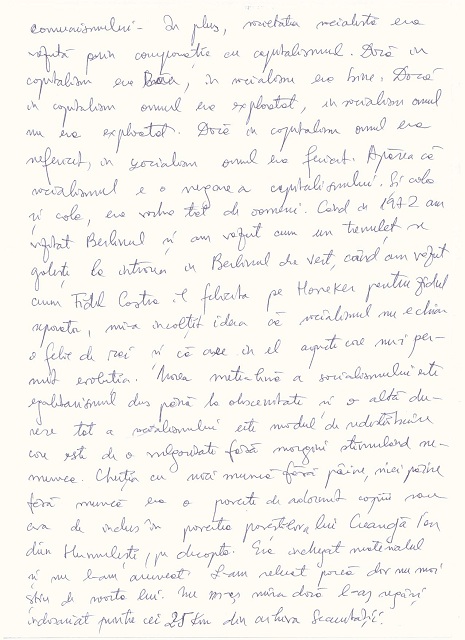 comunismului. În plus, societatea socialistă era
văzută prin comparație cu capitalismul. Dacă în
capitalism era rău, în socialism era bine. Dacă
în capitalism omul era exploatat, in socialism omul
nu era exploatat. Dacă în capitalism omul era
nefericit, in socialism omul era fericit. Apărea că
socialismul e o negare a capitalismului. Și colo
și colo, era vorba tot de oameni. Când in 1972 am
vizitat Berlinul și am văzut cum un trenuleț se
golește la intrarea in Berlinul de vest, când am văzut
cum Fidel Castro îl felicita pe Honeker pentru zidul
separator, mi-a incolțit ideea că socialismul nu e chiar
o felie de rai și că are in el aspecte care nu-i per-
mit evoluția. Marea meteahnă a socialismului este
egalitarismul dus până la obscenitate și o altă du-
rere tot a socialismului este modul de redistribuire
care este de o vulgaritate fără margini stimulând ne-
munca. Chestia cu nici muncă fără pâine, nici pâine
fără muncă era o poveste de adormit copiii sau
era de inclus în povestea poveștilor a lui Creangă Ion
din Humulești, pe discopte. Era incheiat materialul
și nu l-am aruncat. L-am reluat parcă dar nu mai
știu de soarta lui. Nu m-aș mira dacă l-aș regăsi
indosariat printre cei 25 Km din arhiva Securității.